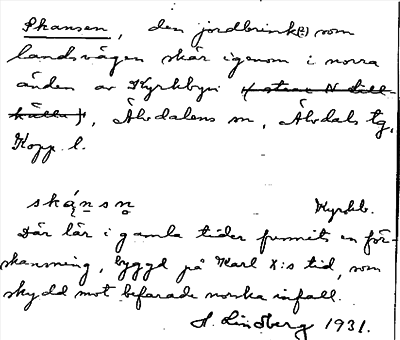 Skansen, den jordbrink(e) som
landsvägen skär igenom i norra
änden av Kyrkbyn
källa), Älvdalens sn, Älvdals tg,
Kopp. l.
skánsn Kyrkb.
Där lär i gamla tider funnits en för-
skansning, byggd på Karl X:s tid, som
skydd mot befarade norska infall.
H. Lindberg 1931.